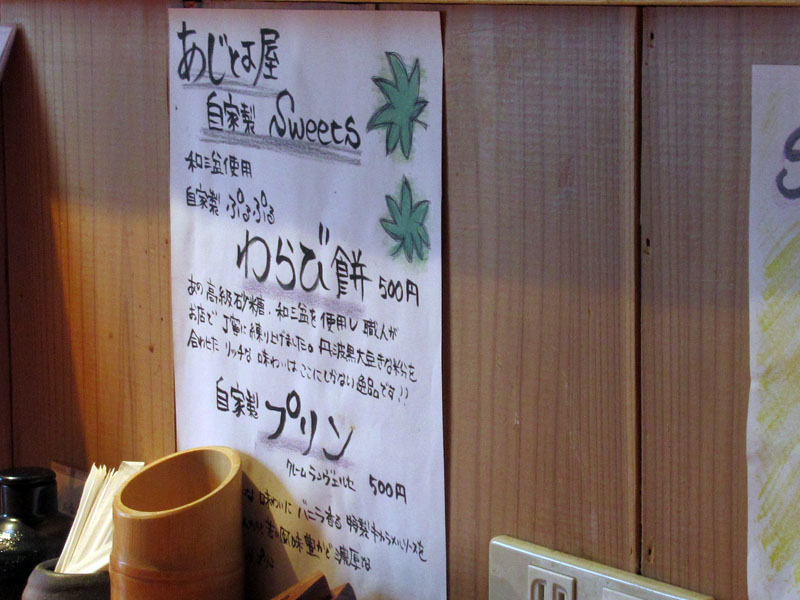 あじとよ屋
自家製 Sweets
和三盆使用
自家製 ぷるぷる
わらび餅 500円
あの高級砂糖、和三盆を使用し職人が
お店で丁寧に練り上げました。丹波黒大豆きな粉を
合わせた リッチな味わいは ここにしかない逸品です!!
自家製 プリン
クレームランヴェルセ 500円
味わいに バニラ香る 特製キャラメルソースを
風味豊かで濃厚な